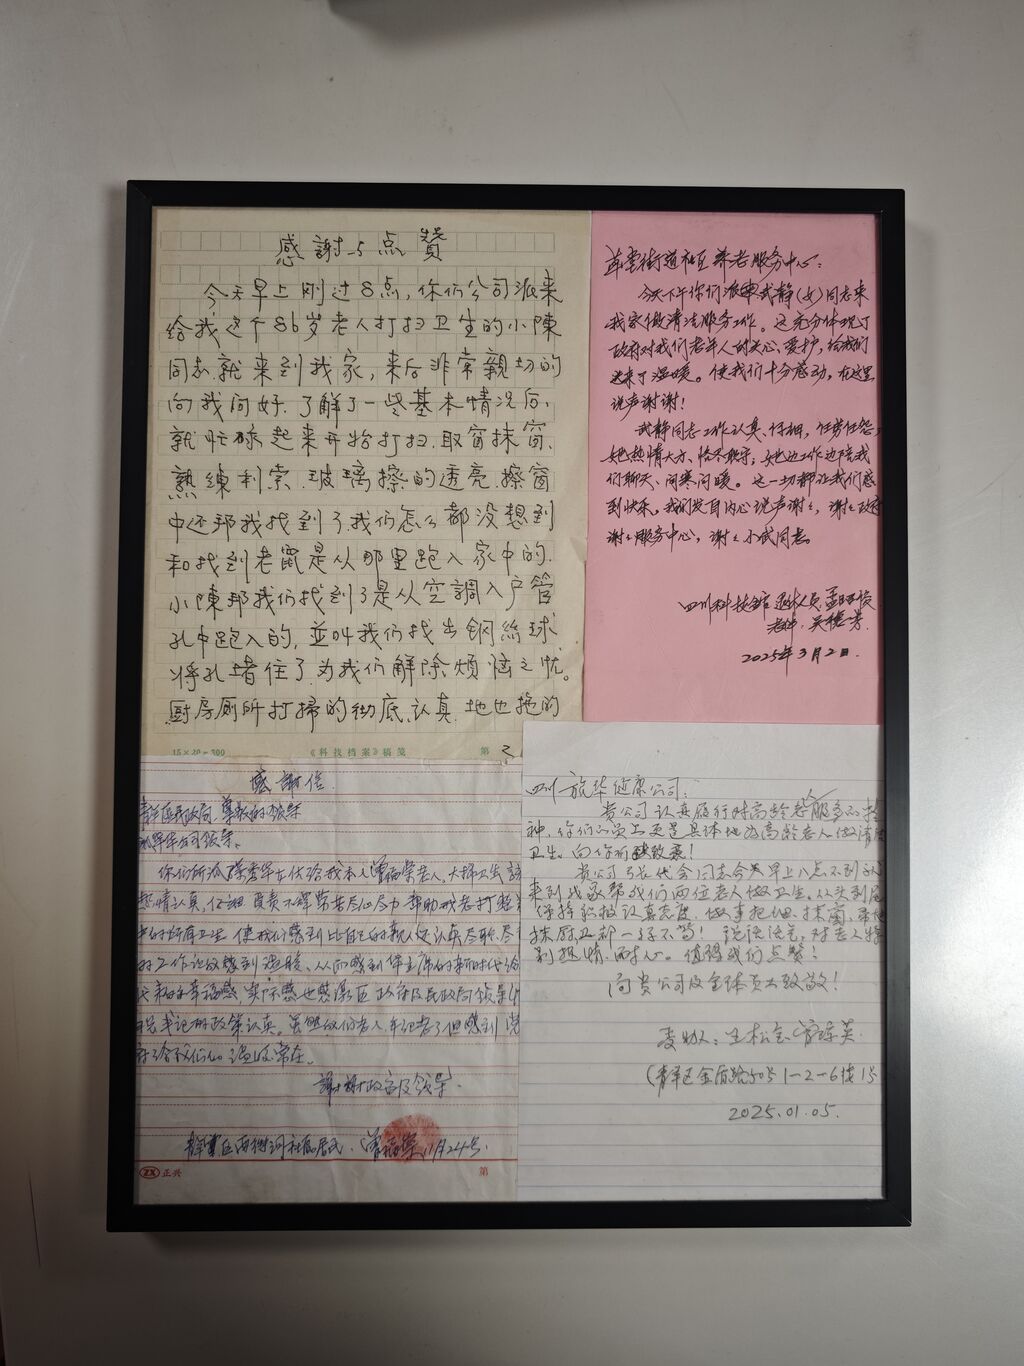 感謝与点贊
今天早上刚过8点，你们公司派来
给我这个86岁老人打扫卫生的小陳
同志就来到我家，来后非常親切的
向我问好.了解了一些基本情况后，
就忙碌起来开始打扫.取窗抹窗、
熟練利索.玻璃擦的透亮.擦窗
中还帮我找到了我们怎么都没想到
和找到老鼠是从那里跑入家中的.
小陳帮我们找到了是从空調入户管
孔中跑入的，並叫我们找出钢絲球
将孔堵住了.为我们解除烦恼之忧。
厨房厕所打掃的彻底、认真.地也拖的
15×20=300 《科技档案》稿笺 第 2
街道社区养老服务中心：
今天下午你们派武静(女)同志来
我家做清洁服务工作。这充分体现了
政府对我们老年人的关心、爱护，给我们
送来了温暖。使我们十分感动，在这里
说声谢谢！
武静同志工作认真、仔细，任劳任怨，
她热情大方、；她边工作边陪我
们聊天、问寒问暖。这一切都让我们感
到快乐。我们发自内心说声谢谢，谢谢政府
谢谢服务中心，谢谢小武同志。
四川科技馆退休人员孟
老伴：吴
2025年3月2日
感謝信
青羊区民政局尊敬的领导
公司领导.
你们所派 女代给我本人 老人，大掃卫生
热情认真，仔细負责不 尽心尽力帮助我老打
的所有卫生 使我们感到比自己的親人还认真尽职、尽
的工作 感到温暖、从而感到 主席的新时代给
的幸福感 区政府及民政局领导
书记 政策认真。虽然我们老人年记老了但感到
给我们心温暖常在。
謝謝政府及领导.
青羊区 社區居民.( 11月24号.
ZX 正兴 第
四川 华健康公司：
贵公司认真履行对高龄老人服务的
神，你们的员工更是具体地为高龄老人做清
卫生。向你们致敬！
贵公司 同志今天早上八点不到 
来到我家帮我们两位老人做卫生。从头到尾
保持积极认真态度，做事把细、抹窗、
抹厨卫都一丝不苟！说话 ，对老人特
别热情、耐心。值得我们点赞！
向贵公司及全体员工致敬！
王松
(青羊区金盾路50号1-2-6楼1号
2025.01.05.